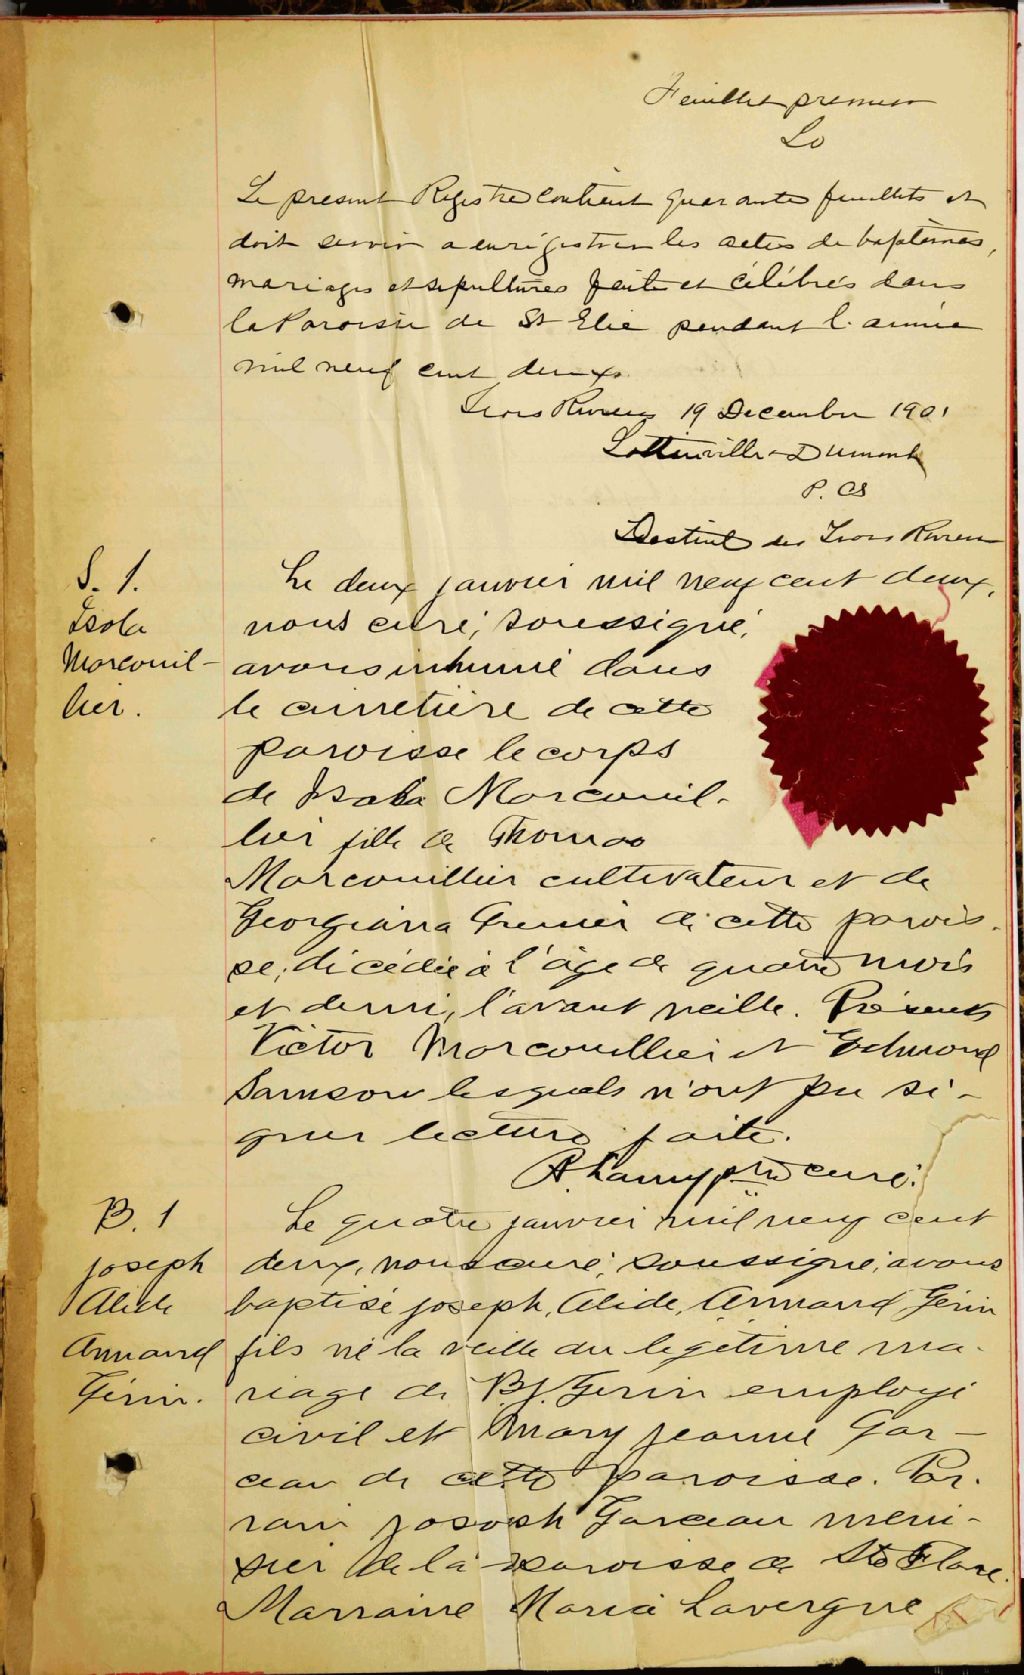 Feuillet premier
Lo
Le present Registre contient quarante feuillets et
doit servir a enrégistrer les actes de baptêmes,
mariages et sepultures faits et célébrés dans
la Paroisse de St Elie pendant l'année
mil neuf cent deux
Trois Rivieres 19 Decembre 1901
Lottinville & Dumont
P. CS
District des Trois Rivieres
S. 1.
Isola
Marcouil-
lier.
Le deux janvier mil neuf cent deux,
nous curé, soussigné,
avons inhumé dans
le cimetière de cette
paroisse le corps
de Isola Marcouil-
lier fille de Thomas
Marcouillier cultivateur et de
Georgiana Grenier de cette parois-
se, décédée à l'âge de quatre mois
et demi, l'avant veille. Présents
Victor Marcouillier et Edmond
Samson lesquels n'ont pu si-
gner lecture faite.
Lamy ptre curé.
B. 1
joseph
Alide
Armand
Gérin.
Le quatre janvier mil neuf cent
deux, nous curé, soussigné, avons
baptisé joseph, Alide, Armand Gérin
fils né la veille du légitime ma-
riage de B.J. Gerin employé
civil et Mary Jeanne Gar-
ceau de cette paroisse. Par-
rain joseph Garceau menui-
sier de la paroisse de Ste Flore.
Marraine Maria Lavergne